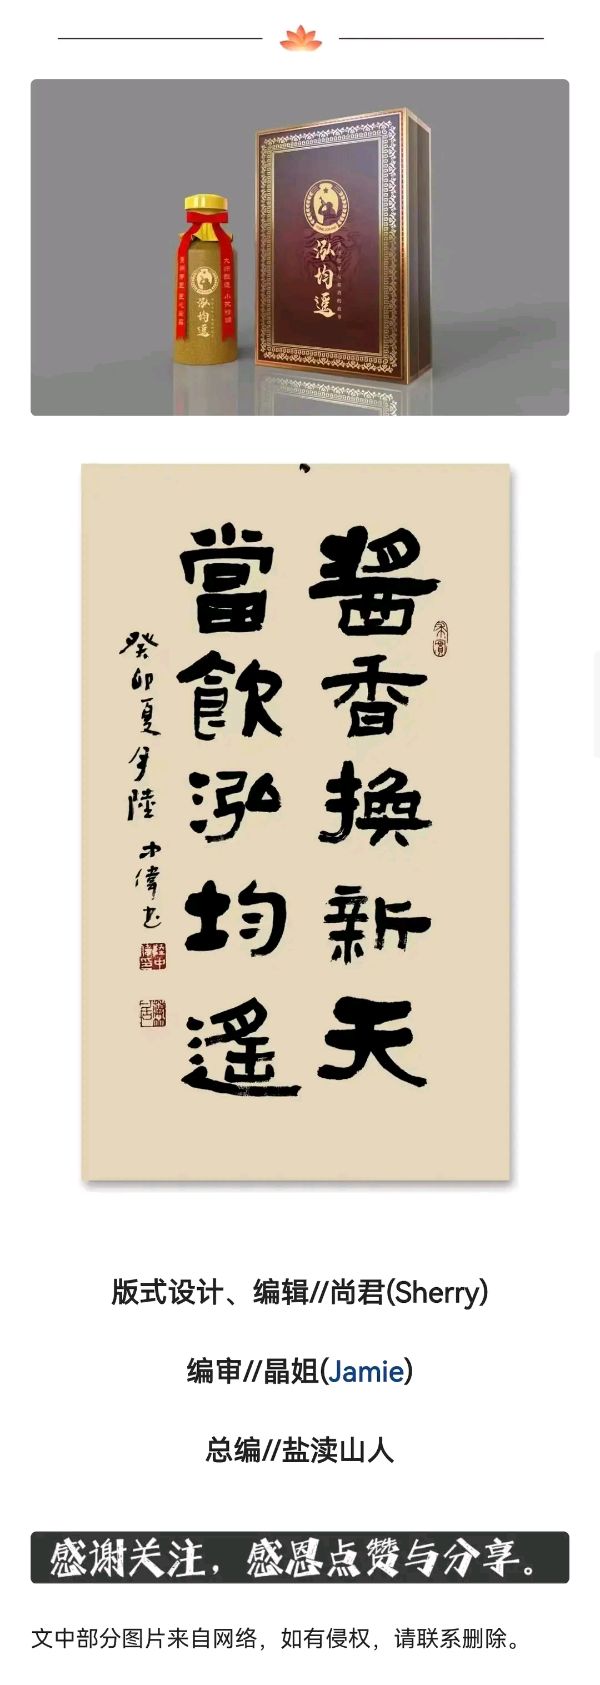 泓均遥
泓均遥
醬香換新天
當飲泓均遙
癸卯夏月陸中偉书
版式设计、编辑//尚君(Sherry)
编审//晶姐(Jamie)
总编//盐渎山人
感谢关注，感恩点赞与分享。
文中部分图片来自网络，如有侵权，请联系删除。